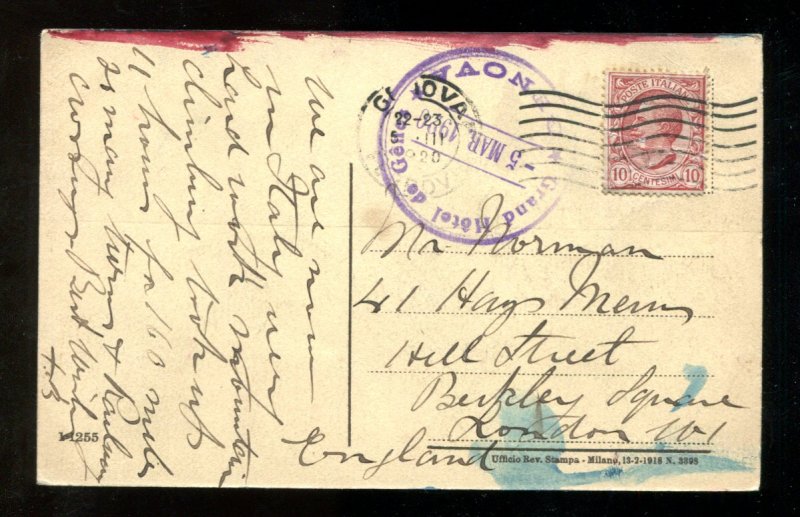 We are now
in Italy very
hard work mountain
climbing took us
11 hours for 160 miles
so many turns & Railway
crossings Best Wishes
GENOVA
22-23
III
920
GENOVA
Grand Hôtel de Gênes
- 5 MAR 1920
POSTE ITALIANE
10 CENTESIMI 10
Mr Norman
41 Hays Mews
Hill Street
Berkley Square
London W1
England
1-1255
Ufficio Rev. Stampa - Milano, 13-2-1918 N. 3898